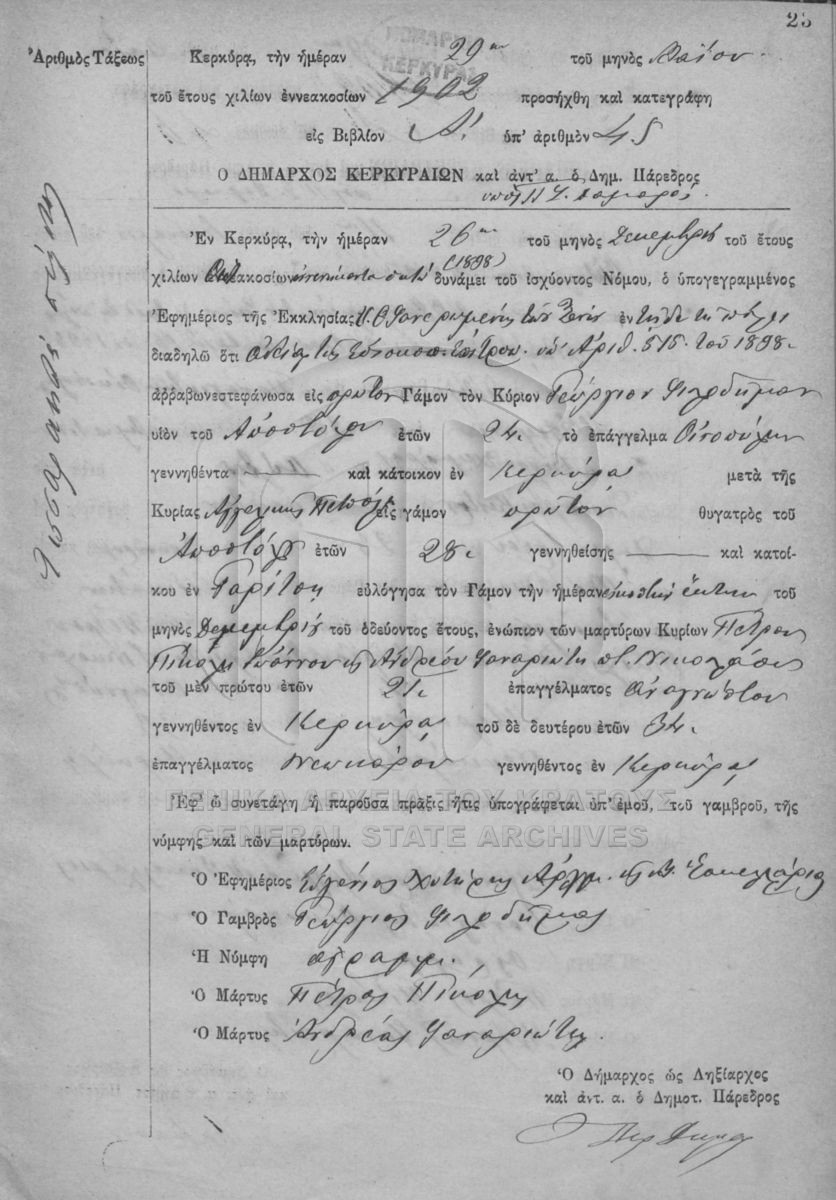 25
Ἀριθμὸς Τάξεως
Κερκύρᾳ, τὴν ἡμέραν 29ην τοῦ μηνὸς Μαΐου
τοῦ ἔτους χιλίων ἐννεακοσίων 1902 προσήχθη καὶ κατεγράφη
εἰς Βιβλίον Α! ὑπ' ἀριθμὸν 45
Ο ΔΗΜΑΡΧΟΣ ΚΕΡΚΥΡΑΙΩΝ καὶ ἀντ' α. ὁ Δημ. Πάρεδρος
Ἐν Κερκύρᾳ, τὴν ἡμέραν 26ην τοῦ μηνὸς Δεκεμβρίου τοῦ ἔτους
(1898)
χιλίων Οκτακοσίων ἐννενήκοντα ὀκτώ δυνάμει τοῦ ἰσχύοντος Νόμου, ὁ ὑπογεγραμμένος
Ἐφημέριος τῆς Ἐκκλησίας Υ. Θ. Φανερωμένης τῶν Ξένων ἐν τῇδε τῇ πόλει
διαδηλῶ ὅτι ἀδείᾳ τῆς ὑπ' Ἀριθ. 515 τοῦ 1898
ἀῤῥαβωνεστεφάνωσα εἰς πρῶτον Γάμον τὸν Κύριον Γεώργιον
υἱὸν τοῦ Ἀποστόλου ἐτῶν 24 τὸ ἐπάγγελμα Οἰνοπώλην
γεννηθέντα καὶ κάτοικον ἐν Κερκύρᾳ μετὰ τῆς
Κυρίας Ἀγγελικῆς εἰς γάμον πρῶτον θυγατρὸς τοῦ
Ἀποστόλου ἐτῶν 28 γεννηθείσης καὶ κατοί-
κου ἐν Γαρίτσῃ εὐλόγησα τὸν Γάμον τὴν ἡμέραν εἰκοστὴν ἕκτην τοῦ
μηνὸς Δεκεμβρίου τοῦ ὁδεύοντος ἔτους, ἐνώπιον τῶν μαρτύρων Κυρίων Πέτρου
Πικούλη Ἰωάννου καὶ Ἀνδρέου Φαναριώτη Νικολάου
τοῦ μὲν πρώτου ἐτῶν 21 ἐπαγγέλματος Ἀναγνώστου
γεννηθέντος ἐν Κερκύρᾳ τοῦ δὲ δευτέρου ἐτῶν 34
ἐπαγγέλματος Νεωκόρου γεννηθέντος ἐν Κερκύρᾳ
ΓΕΝΙΚΑ ΑΡΧΕΙΑ ΤΟΥ ΚΡΑΤΟΥΣ
Ἐφ' ᾧ συνετάγη ἡ παροῦσα πρᾶξις ἥτις ὑπογράφεται ὑπ' ἐμοῦ, τοῦ γαμβροῦ, τῆς
GENERAL STATE ARCHIVES
νύμφης καὶ τῶν μαρτύρων.
Ὁ Ἐφημέριος Εὐγένιος
Ὁ Γαμβρὸς Γεώργιος
Ἡ Νύμφη ἀγράμμ.
Ὁ Μάρτυς Πέτρος Πικούλης
Ὁ Μάρτυς Ἀνδρέας Φαναριώτης
Ὁ Δήμαρχος ὡς Ληξίαρχος
καὶ ἀντ. α. ὁ Δημοτ. Πάρεδρος